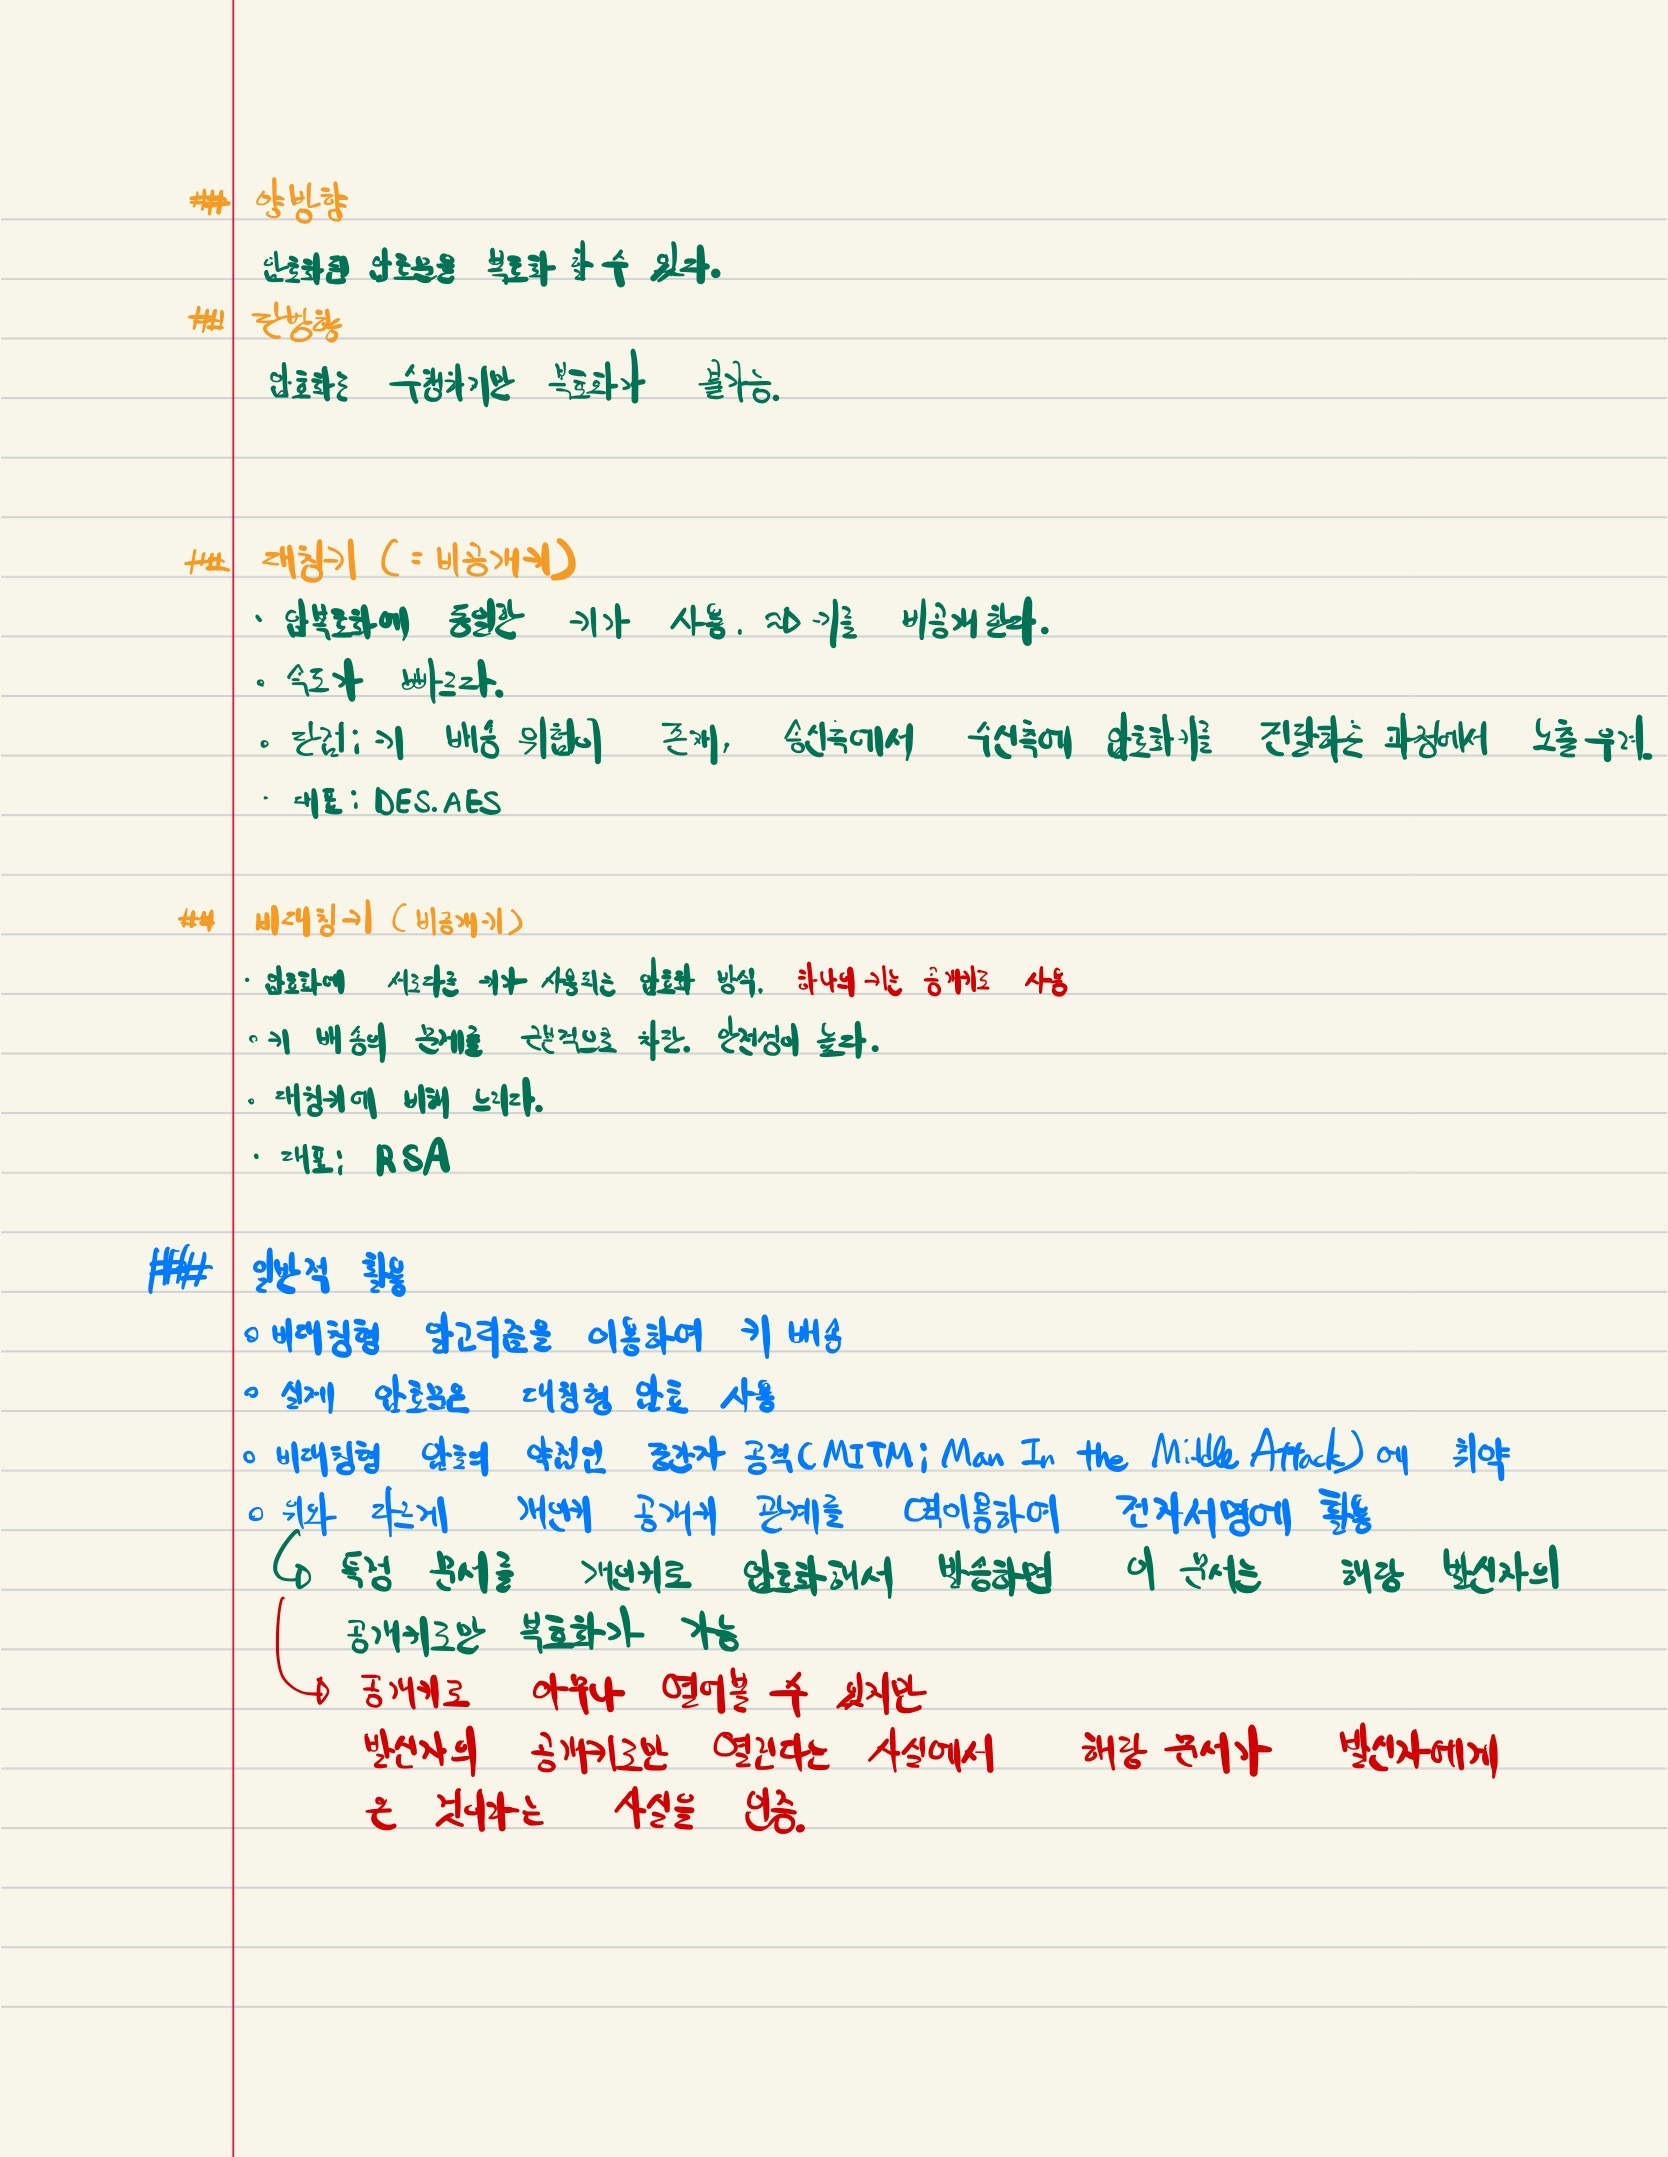 ## 양방향
암호화된 암호문을 복호화 할 수 있다.
## 단방향
암호화는 수행하지만 복호화가 불가능.
## 대칭키 (= 비공개키)
· 암복호화에 동일한 키가 사용. ⇒ 키를 비공개 한다.
· 속도가 빠르다.
· 단점; 키 배송 위험이 존재, 송신측에서 수신측에 암호화키를 전달하는 과정에서 노출 우려.
· 대표; DES. AES
## 비대칭키 (비공개키)
· 암호화에 서로다른 키가 사용되는 암호화 방식. 하나의 키는 공개키로 사용
· 키 배송의 문제를 근본적으로 차단. 안전성이 높다.
· 대칭키에 비해 느리다.
· 대표; RSA
### 일반적 활용
○ 비대칭형 알고리즘을 이용하여 키 배송
○ 실제 암호문은 대칭형 암호 사용
○ 비대칭형 암호의 약점인 중간자 공격(MITM; Man In the Middle Attack)에 취약
○ 위와 다르게 개인키 공개키 관계를 역이용하여 전자서명에 활용
특정 문서를 개인키로 암호화해서 발송하면 이 문서는 해당 발신자의
공개키로만 복호화가 가능
공개키로 아무나 열어볼 수 있지만
발신자의 공개키로만 열린다는 사실에서 해당 문서가 발신자에게
온 것이라는 사실을 인증.